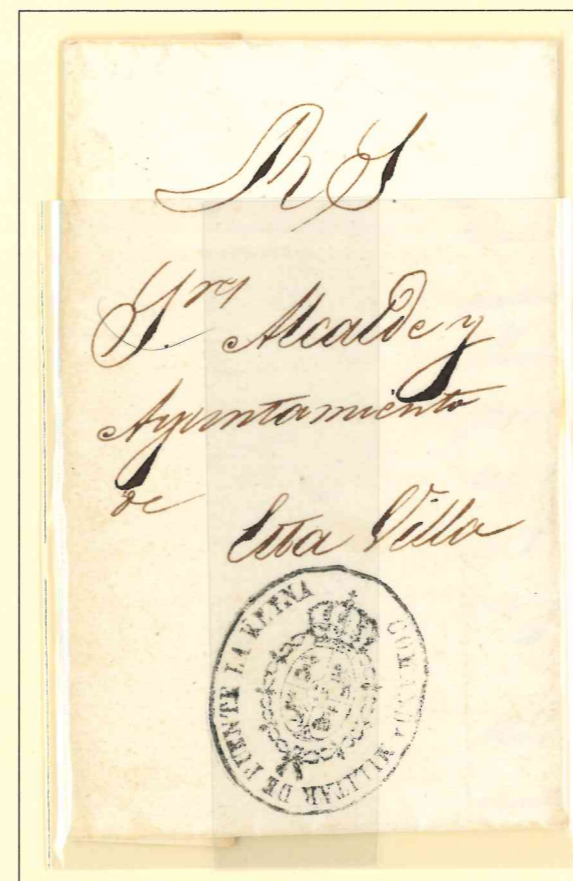 R S.
S.res Alcalde y
Ayuntamiento
de
Esta Villa
COMAND.A MILITAR DE PUENTE LA REYNA